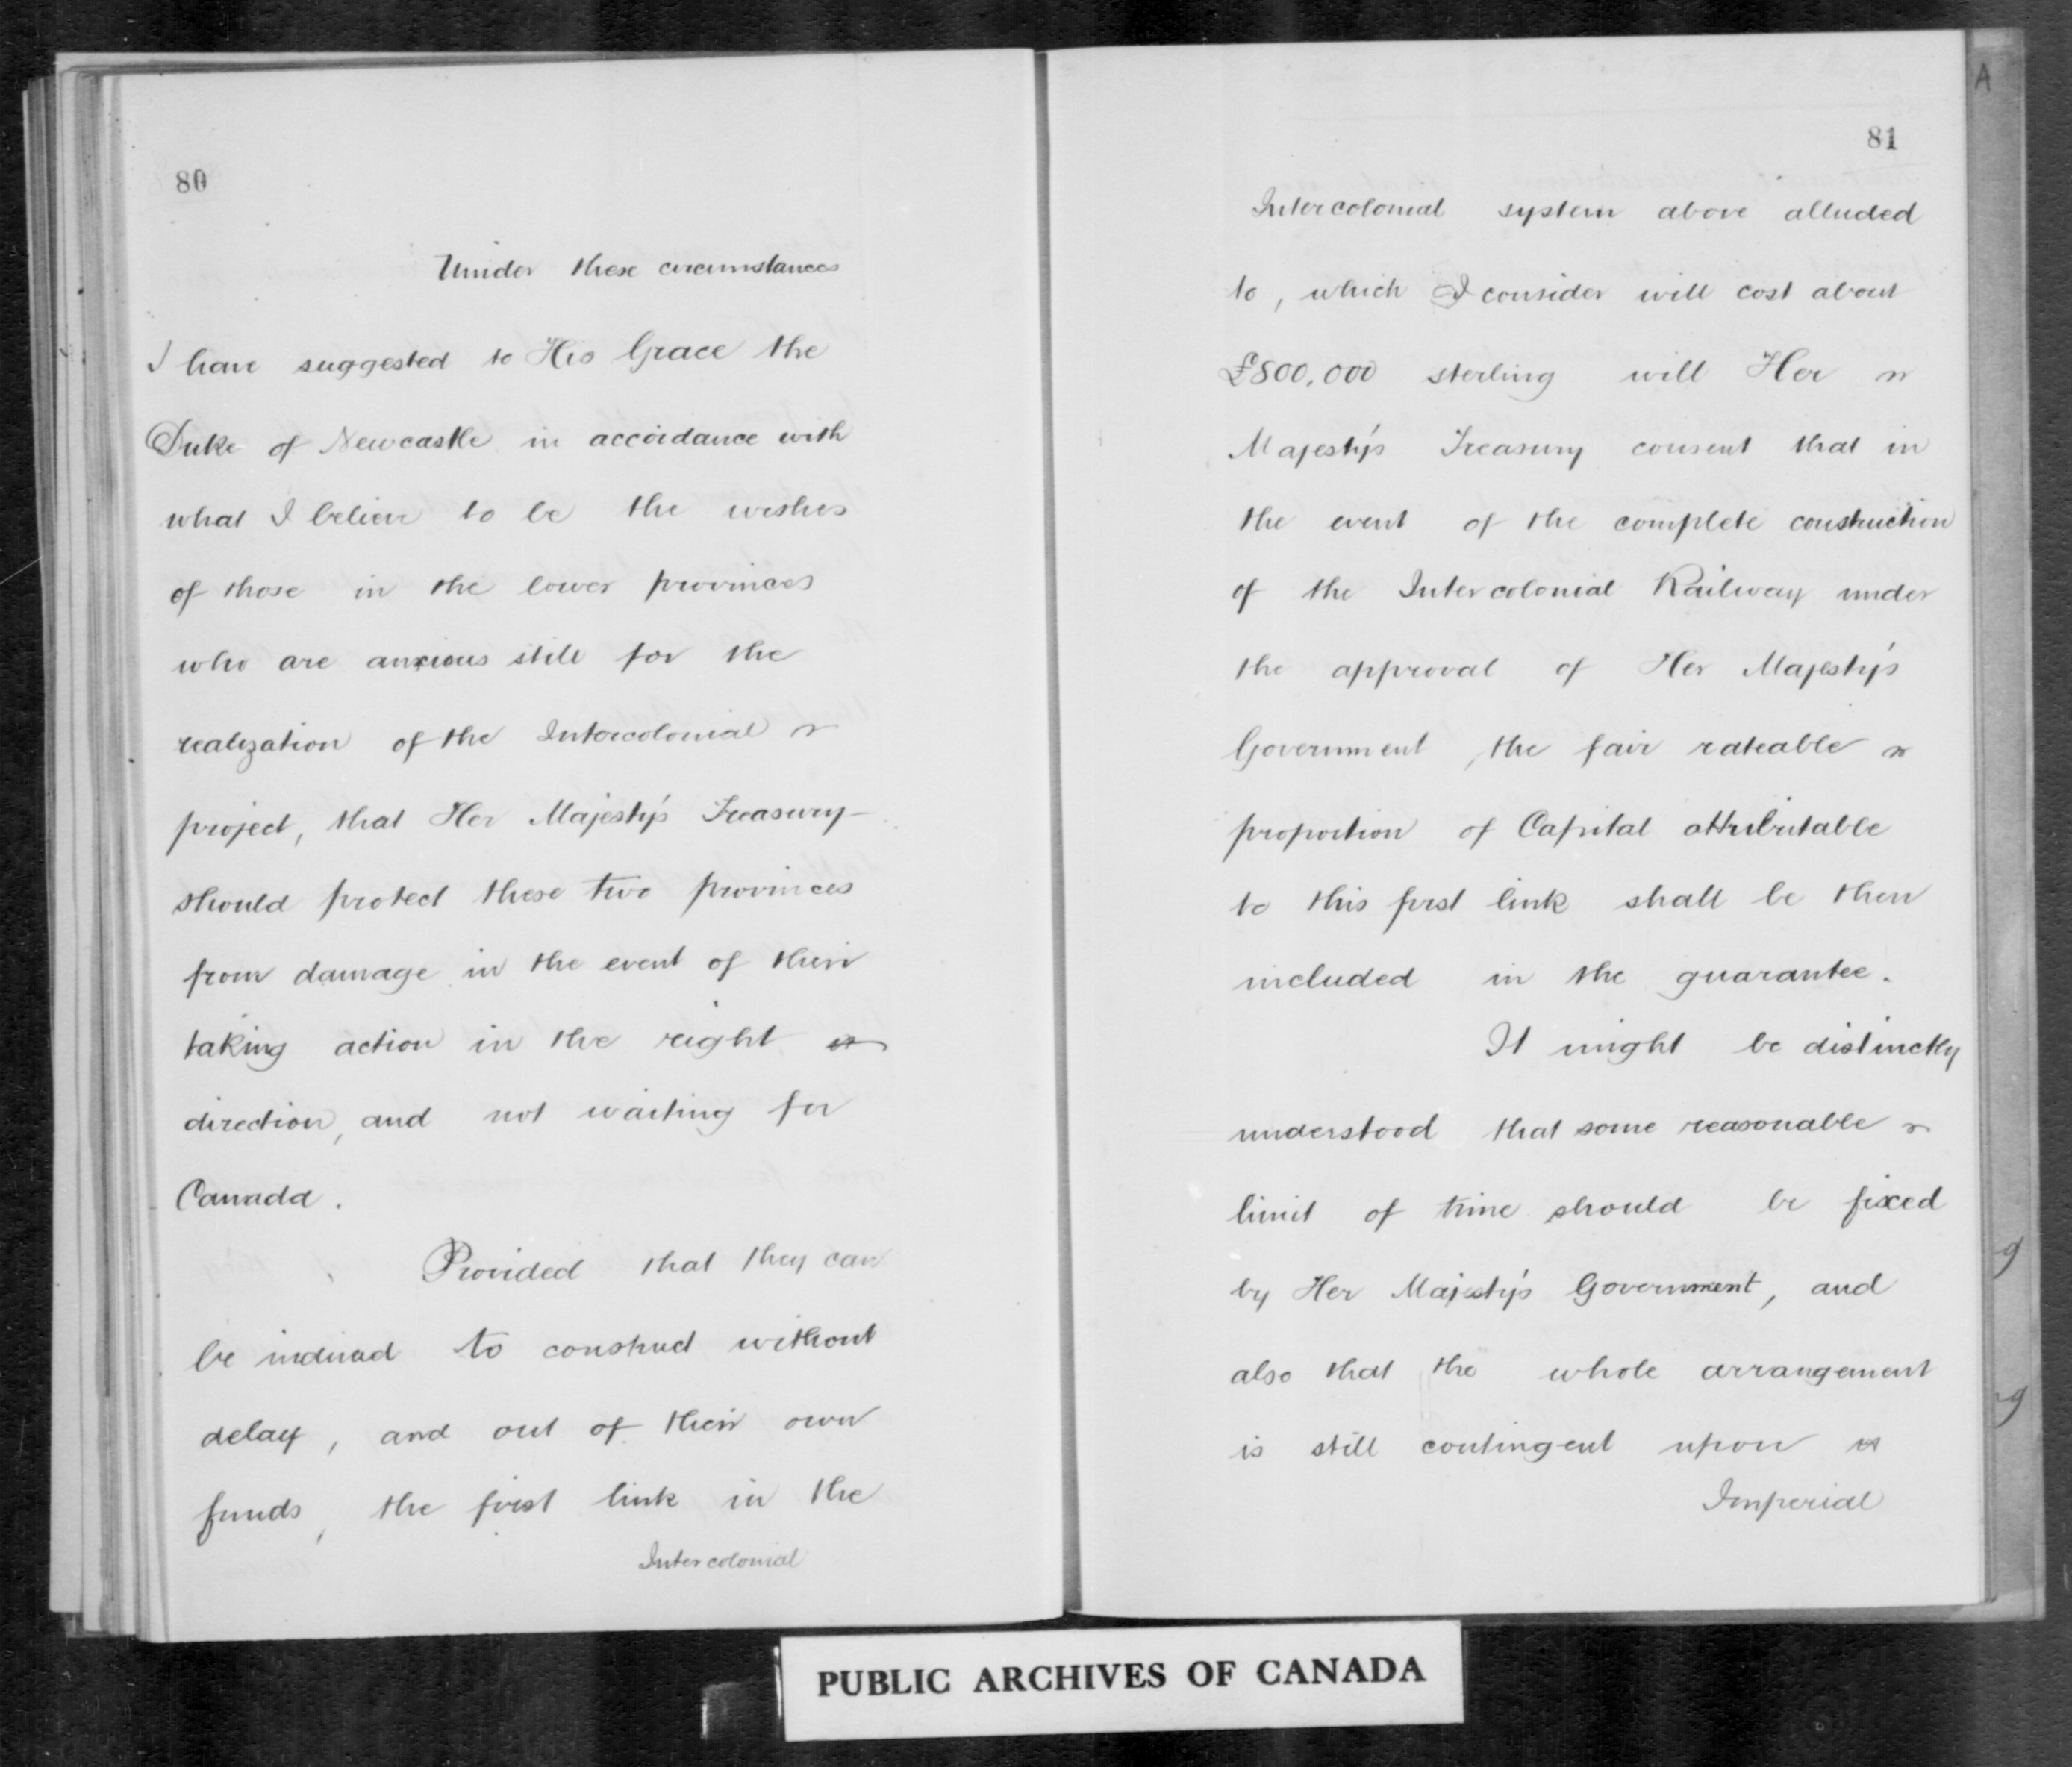 80
Under these circumstances
I have suggested to His Grace the
Duke of Newcastle in accordance with
what I believe to be the wishes
of those in the lower provinces
who are anxious still for the
realization of the Intercolonial
project, that Her Majesty's Treasury
should protect these two provinces
from damage in the event of their
taking action in the right
direction, and not waiting for
Canada.
Provided that they can
be induced to construct without
delay, and out of their own
funds, the first link in the
Intercolonial
81
Intercolonial system above alluded
to, which I consider will cost about
£800,000 sterling will Her
Majesty's Treasury consent that in
the event of the complete construction
of the Intercolonial Railway under
the approval of Her Majesty's
Government, the fair rateable
proportion of Capital attributable
to this first link shall be then
included in the guarantee.
It might be distinctly
understood that some reasonable
limit of time should be fixed
by Her Majesty's Government, and
also that the whole arrangement
is still contingent upon
Imperial
A
g
g
PUBLIC ARCHIVES OF CANADA